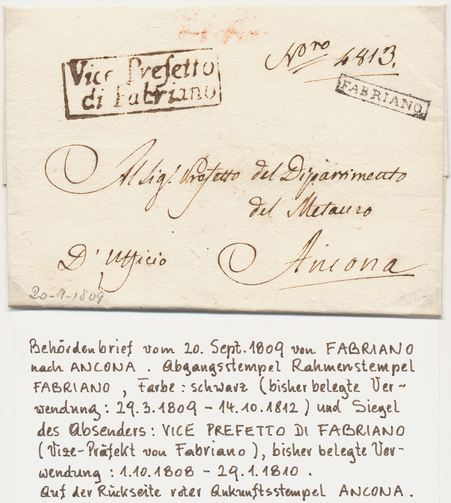 Vice Prefetto
di Fabriano
N.ro 4813.
FABRIANO
Al Sig.r Prefetto del Dipartimento
del Metauro
D'Ufficio
Ancona
20-9-1809
Behördenbrief vom 20. Sept. 1809 von FABRIANO
nach ANCONA. Abgangsstempel Rahmenstempel
FABRIANO, Farbe: schwarz (bisher belegte Ver-
wendung: 29.3.1809 - 14.10.1812) und Siegel
des Absenders: VICE PREFETTO DI FABRIANO
(Vize-Präfekt von Fabriano), bisher belegte Ver-
wendung: 1.10.1808 - 29.1.1810.
Auf der Rückseite roter Ankunftsstempel ANCONA.